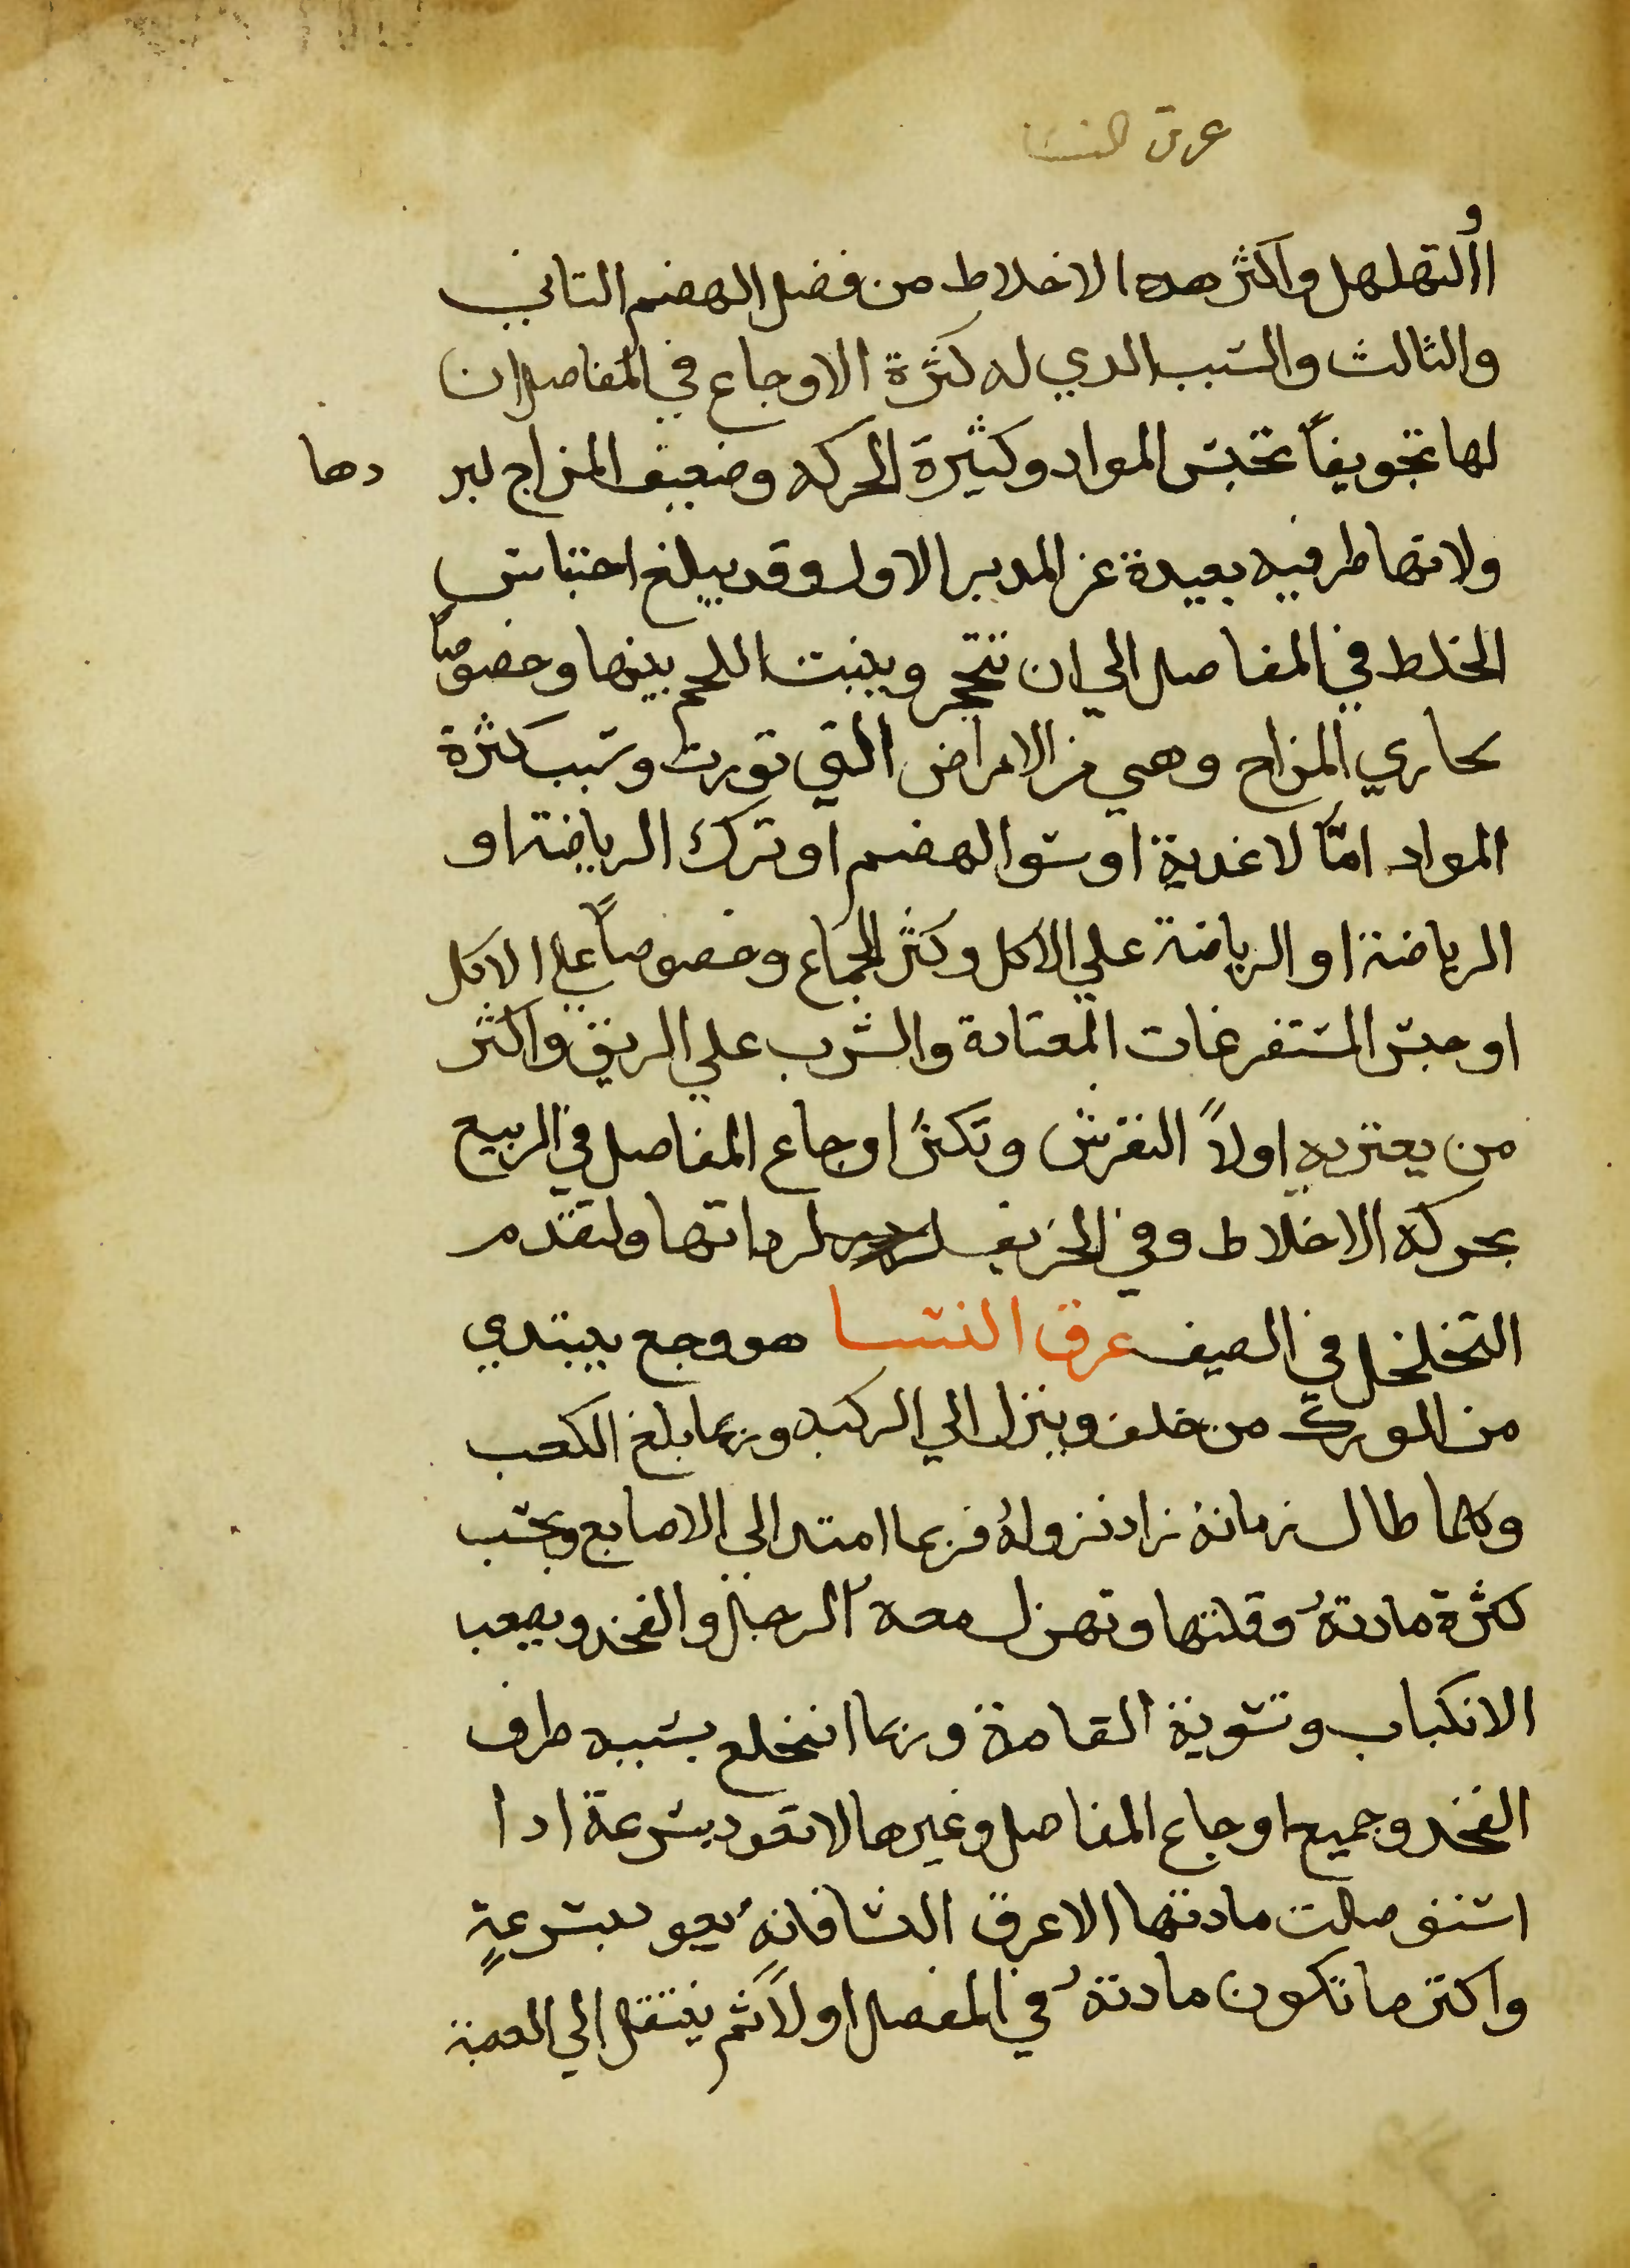 عرق النسا
و
االتهلهل واكثر هده الاخلاط من فضل الهضم التاني
والثالث والسبب الدي له كثرة الاوجاع في المفاصل ان
لها تجويفاً تحتبس المواد وكثيرة الحركه وضعيف المزاج لبر دها
ولانها طرفيه بعيدة عن المدبر الاول وقد يبلغ احتباس
الخلط في المفاصل الي ان تتحجر وينبت اللحم بينها وخصوصاً
حاري المزاج وهي من الامراض التي تورث وسبب كثرة
المواد امّا لاغدية او سو الهضم او ترك الرياضة او
الرياضة او الرياضة علي الاكل وكثر الجماع وخصوصاً علي الاكل
او حبس المستفرغات المعتادة والشرب علي الريق واكثر
من يعتريه اولاً النقرس وتكثر اوجاع المفاصل في الربيع
بحركة الاخلاط وفي الخريف لرداتها ولتقدم
التخلخل في الصيف عرق النسا هو وجع يبتدي
من الورك من خلف وينزل الي الركبه وربما بلغ الكعب
وكلما طال زمانهُ زاد نزولهُ فربما امتد الي الاصابع وبحسب
كثرة مادتهُ وقلتها وتهزل معه الرجل والفخد ويصعب
الانكباب وتسوية القامة وربما انخلع بسببه طرف
الفخد وجميع اوجاع المفاصل وغيرها لا تعود بسرعة ادا
استفوصلت مادتها الا عرق النسا فانهُ يعود بسرعةٍ
واكتر ما تكون مادتهُ في المفصل اولاً ثم ينتقل الي العصبة